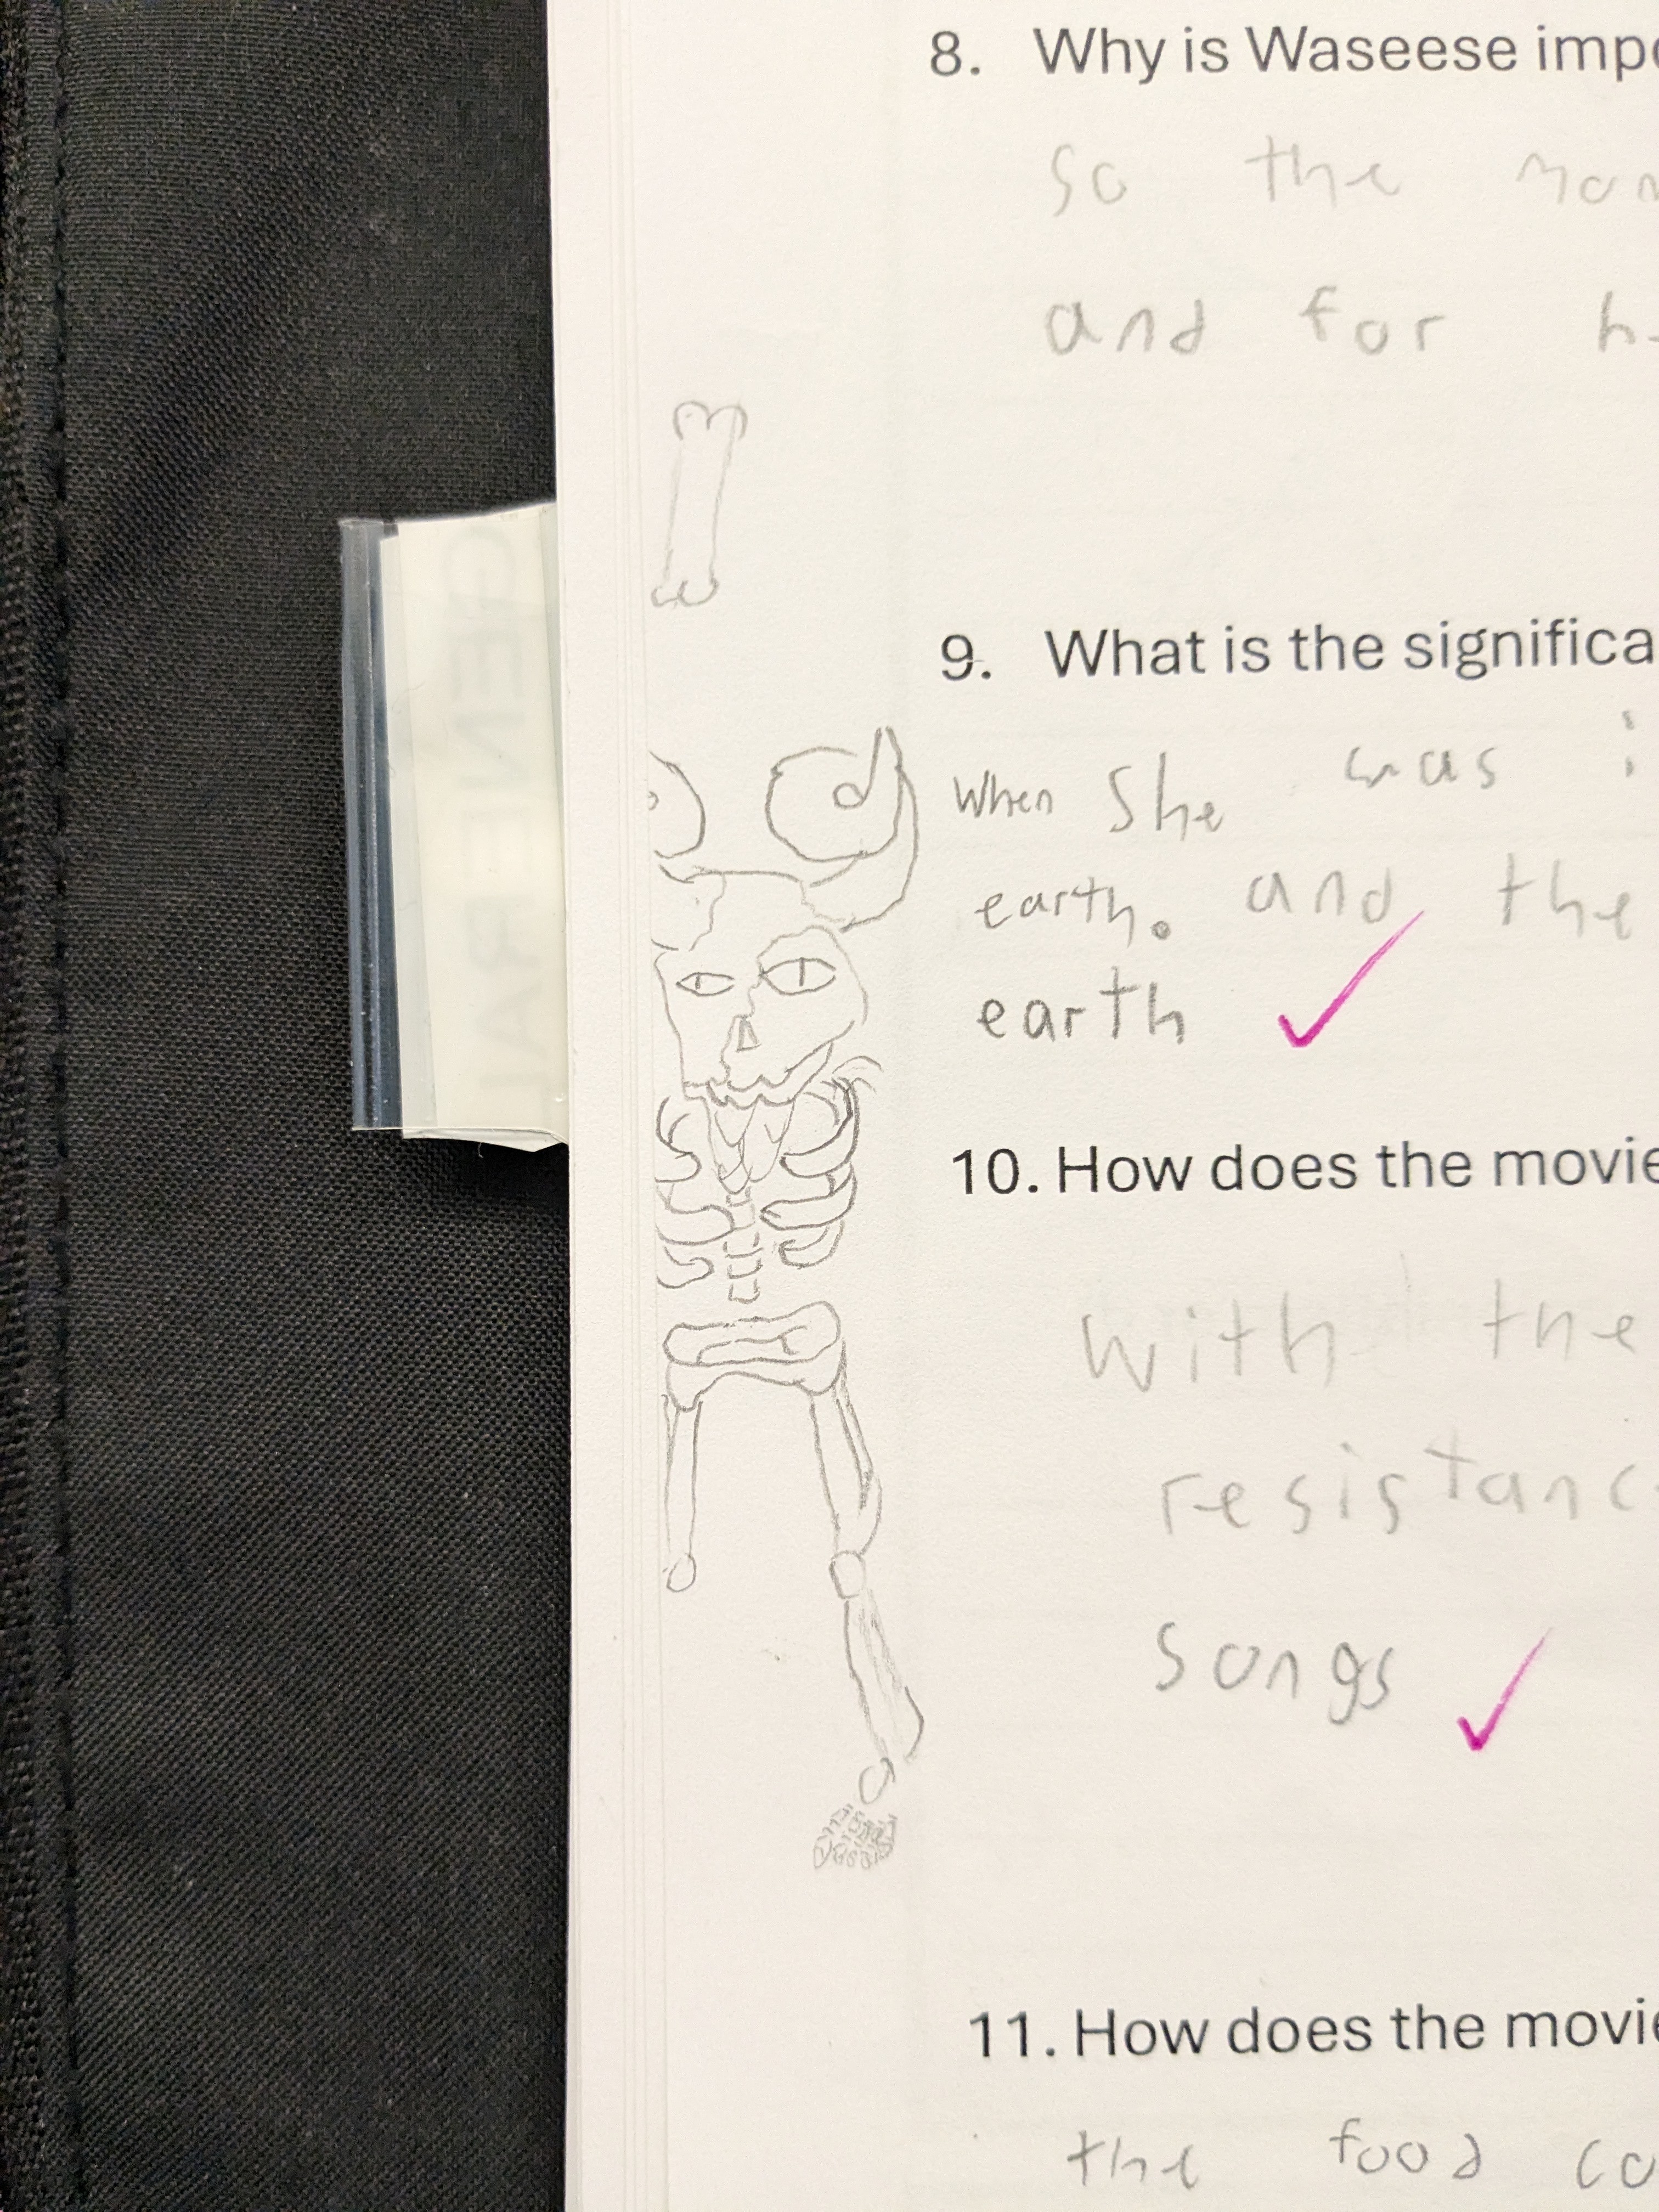 8. Why is Waseese impo
so the mon
and for h
9. What is the significa
When She was i
earth. and the
earth
10. How does the movie
with the
resistanc
songs
11. How does the movie
the food co
GENERAL